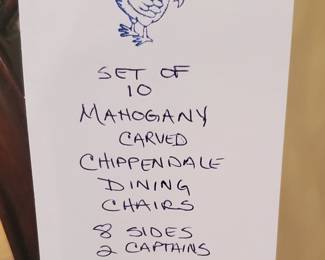 SET OF
10
MAHOGANY
CARVED
CHIPPENDALE
DINING
CHAIRS
8 SIDES
2 CAPTAINS